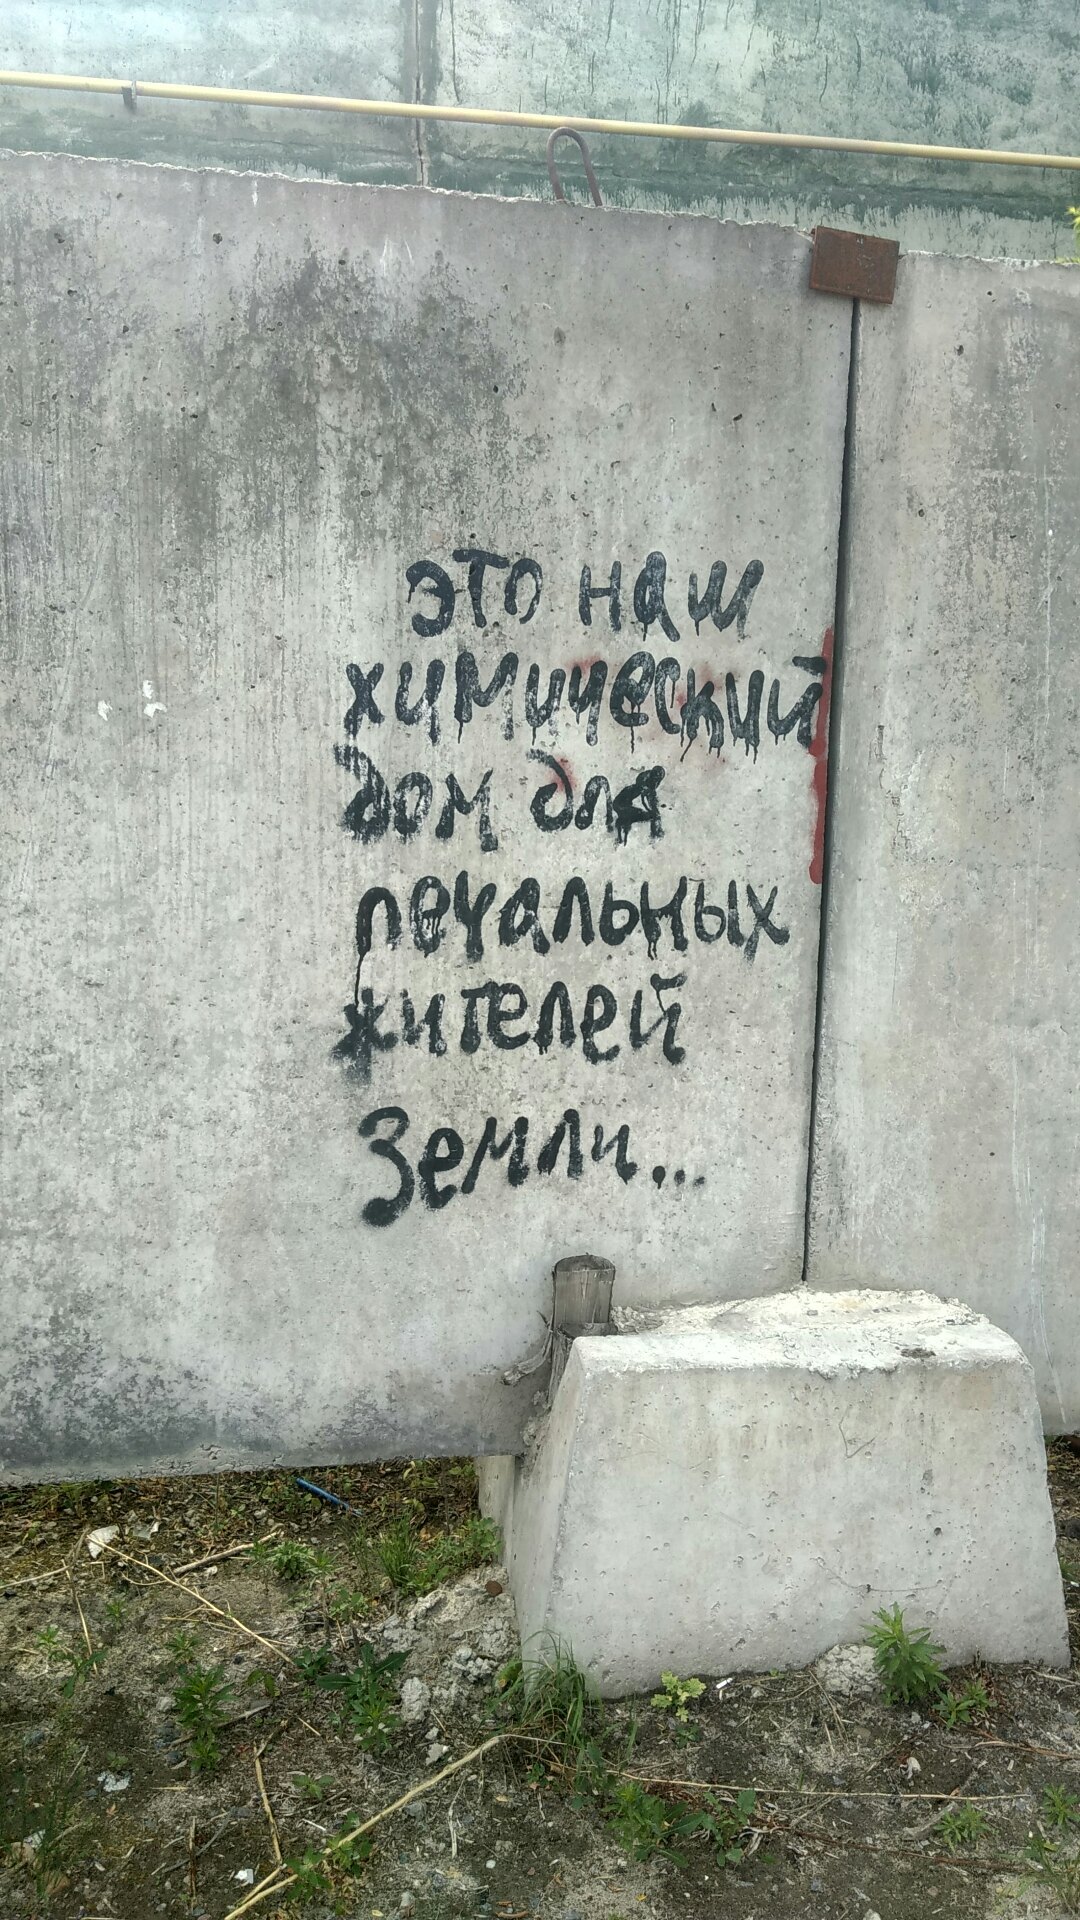 это наш
химический
дом для
печальных
жителей
Земли...